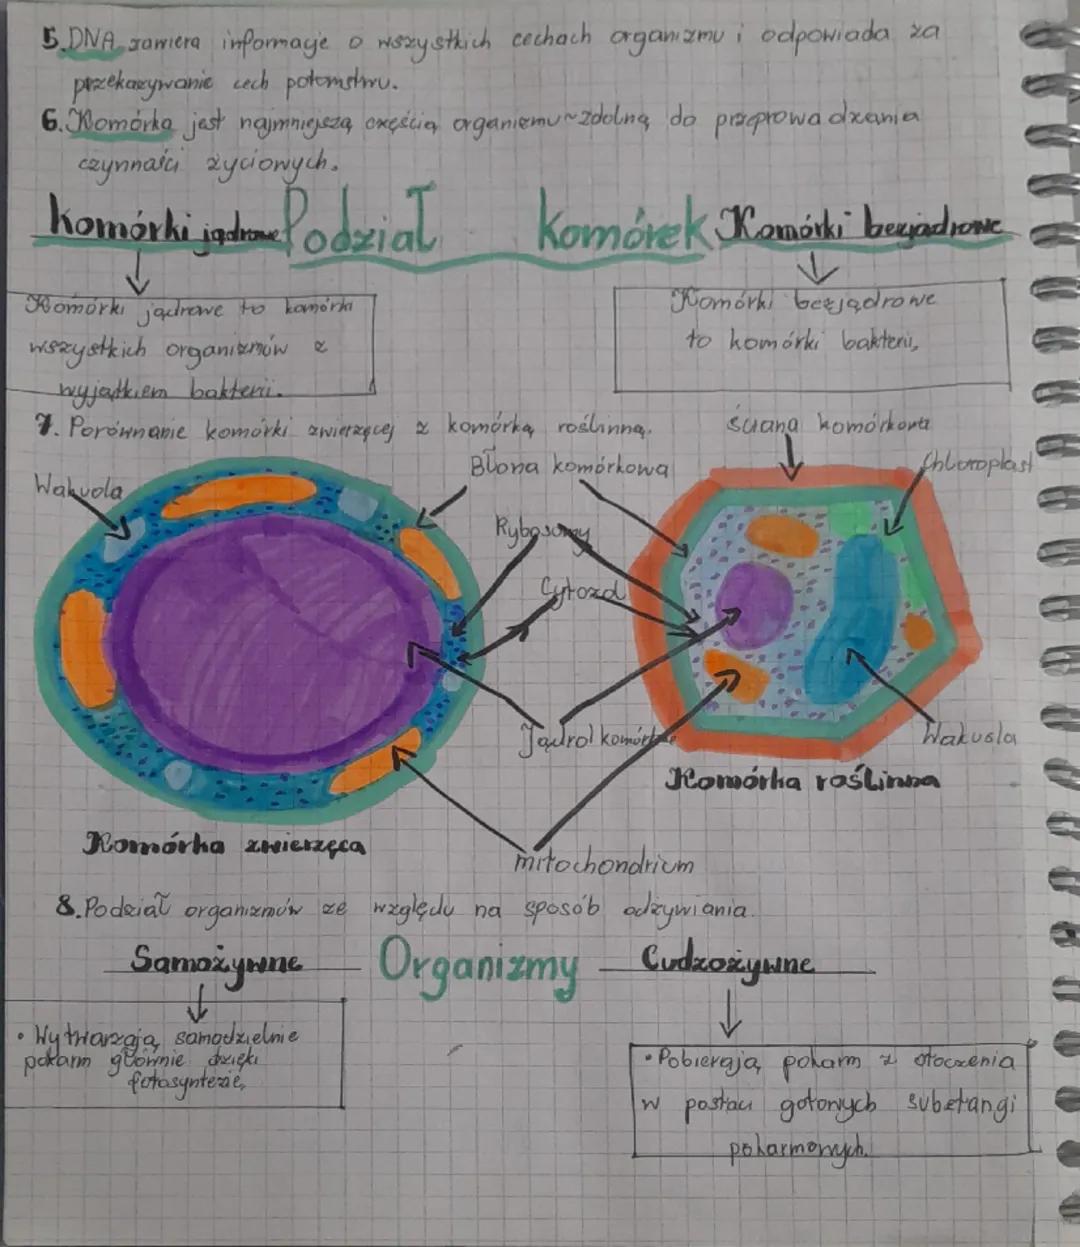 5. DNA zawiera informacje o wszystkich cechach organizmu i odpowiada za
przekazywanie cech potomstwu.
6. Komórka jest najmniejszą częścią organizmu zdolną do przeprowadzania
czynności życiowych.
Komórki jądrowe Podział komórek Komórki bezjądrowe
Komórki jądrowe to komórki
wszystkich organizmów z
wyjątkiem bakterii.
Komórki bezjądrowe
to komórki bakterii,
7. Porównanie komórki zwierzęcej z komórką roślinną.
ściana komórkowa
Błona komórkowa
Chloroplast
Wakuola
Rybosomy
Cytozol
Jądro komórkowe
Wakuola
Komórka roślinna
Komórka zwierzęca
mitochondrium
8. Podział organizmów ze względu na sposób odżywiania.
Samożywne Organizmy Cudzożywne
• Wytwarzają samodzielnie
pokarm głównie dzięki
fotosyntezie,
• Pobierają pokarm z otoczenia
w postaci gotowych substangi
pokarmowych.